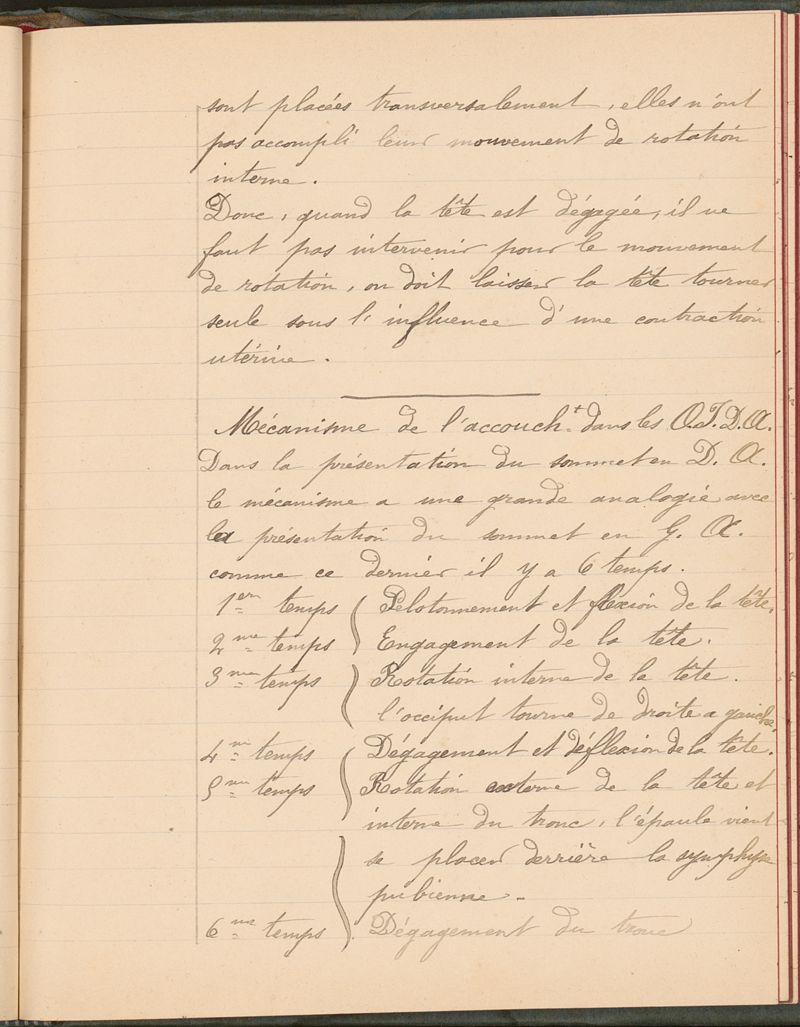 sont placées transversalement, elles n'ont
pas accompli leur mouvement de rotation
interne.
Donc, quand la tête est dégagée, il ne
faut pas intervenir pour le mouvement
de rotation, on doit laisser la tête tourner
seule sous l'influence d'une contraction
utérine.
Mécanisme de l'accouch^t dans les O.I.D.A.
Dans la présentation du sommet en D. A.
le mécanisme a une grande analogie avec
la présentation du sommet en G. A.
comme ce dernier il y a 6 temps.
1er temps ( Pelotonnement et flexion de la tête.
2me temps ( Engagement de la tête.
3me temps ) Rotation interne de la tête.
l'occiput tourne de droite a gauche.
4me temps ( Dégagement et déflexion de la tête.
5me temps ( Rotation externe de la tête et
interne du tronc, l'épaule vient
se placer derrière la symphyse
pubienne.
6me temps ) Dégagement du tronc